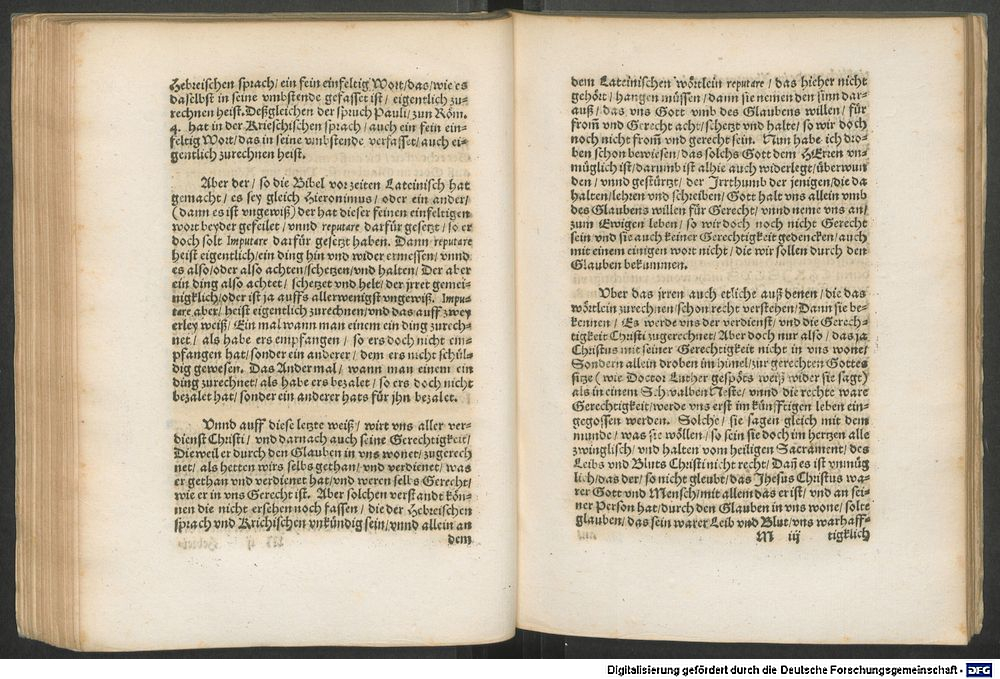 Hebreischen sprach/ ein fein einfeltig Wort/das/wie es
daselbst in seine vmbstende gefasset ist/ eigentlich zu-
rechnen heist. Deßgleichen der spruch Pauli/ zum Röm.
4. hat in der Krieschischen sprach/ auch ein fein ein-
feltig Wort/ das in seine vmbstende verfasset/ auch ei-
gentlich zurechnen heist.
Aber der/ so die Bibel vorzeiten Lateinisch hat
gemacht/ es sey gleich Hieronimus/ oder ein ander/
(dann es ist vngewiß) der hat dieser feinen einfeltigen
wort beyder gefeilet/ vnnd reputare darfür gesetzt/ so er
doch solt Imputare darfür gesetzt haben. Dann reputare
heist eigentlich/ein ding hin vnd wider ermessen/ vnnd
es also/oder also achten/schetzen/vnd halten/ Der aber
ein ding also achtet/ schetzet vnd helt/ der jrret gemei-
nigklich/oder ist ja auffs allerwenigst vngewiß. Impu-
tare aber/ heist eigentlich zurechnen/vnd das auff zwey
erley weiß/ Ein mal wann man einem ein ding zurech-
net/ als habe ers empfangen/ so ers doch nicht em-
pfangen hat/ sonder ein anderer/ dem ers nicht schül-
dig gewesen. Das Ander mal/ wann man einem ein
ding zurechnet/ als habe ers bezalet/ so ers doch nicht
bezalet hat/ sonder ein anderer hats für jhn bezalet.
Vnnd auff diese letzte weiß/ wirt vns aller ver-
dienst Christi/ vnd darnach auch seine Gerechtigkeit/
Die weil er durch den Glauben in vns wonet/ zugerech
net/ als hetten wirs selbs gethan/ vnd verdienet/ was
er gethan vnd verdienet hat/ vnd weren selbs Gerecht/
wie er in vns Gerecht ist. Aber solchen verstandt kön-
nen die nicht ersehen noch fassen/ die der Hebreischen
sprach vnd Krichischen vnkündig sein/ vnnd allein an
dem
dem Lateinischen wörtlein reputare/ das hieher nicht
gehört/ hangen müssen/ dann sie nemen den sinn dar-
auß/ das vns Gott vmb des Glaubens willen/ für
from̃ vnd Gerecht acht/schetzt vnd halte/ so wir doch
noch nicht from̃ vnd gerecht sein. Nun habe ich dro-
ben schon bewiesen/ das solchs Gott dem HErren vn-
müglich ist/ darumb ist alhie auch widerlegt/überwun
den/ vnnd gestürtzt/ der Jrrthumb der jenigen/die da
halten/lehren vnd schreiben/ Gott halt vns allein vmb
des Glaubens willen für Gerecht/ vnnd neme vns an/
zum Ewigen leben/ so wir doch noch nicht Gerecht
sein vnd sie auch keiner Gerechtigkeit gedencken/ auch
mit einem einigen wort nicht/ die wir sollen durch den
Glauben bekummen.
Vber das jrren auch etliche auß denen/ die das
wörtlein zurechnen/ schon recht verstehen/ Dann sie be-
kennen/ Es werde vns der verdienst/ vnd die Gerech-
tigkeit Christi zugerechnet/ Aber doch nur also/ das ja
Christus mit seiner Gerechtigkeit nicht in vns wone/
Sondern allein droben im himel/zur gerechten Gottes
sitze (wie Doctor Luther gespöts weiß wider sie sagt)
als in einem Schwalben Neste/ vnnd die rechte ware
Gerechtigkeit/ werde vns erst im künfftigen leben ein-
gegossen werden. Solche/ sie sagen gleich mit dem
munde/ was sie wöllen/ so sein sie doch im hertzen alle
zwinglisch/ vnd halten vom heiligen Sacrament/ des
Leibs vnd Bluts Christi nicht recht/ Dañ es ist vnmüg
lich/das der/ so nicht gleubt/das Jhesus Christus wa-
rer Gott vnd Mensch/mit allem das er ist/ vnd an sei-
ner Person hat/durch den Glauben in vns wone/ solte
glauben/ das sein warer Leib vnd Blut/ vns warhaff-
M iij tigklich
Digitalisierung gefördert durch die Deutsche Forschungsgemeinschaft - DFG